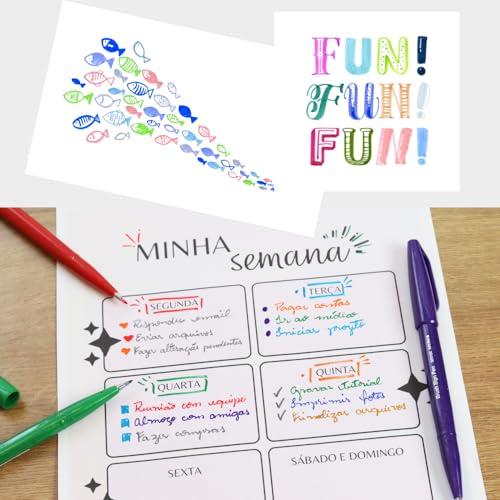 FUN!
FUN!
FUN!
MINHA
semana
SEGUNDA
Responder email
Enviar arquivos
Fazer alteração pendentes
TERÇA
Pagar contas
Ir ao médico
Iniciar projeto
QUARTA
Reunião com equipe
Almoço com amigas
Fazer compras
QUINTA
Gravar tutorial
Imprimir fotos
Finalizar arquivos
SEXTA
SÁBADO E DOMINGO
Brush Sign Pen